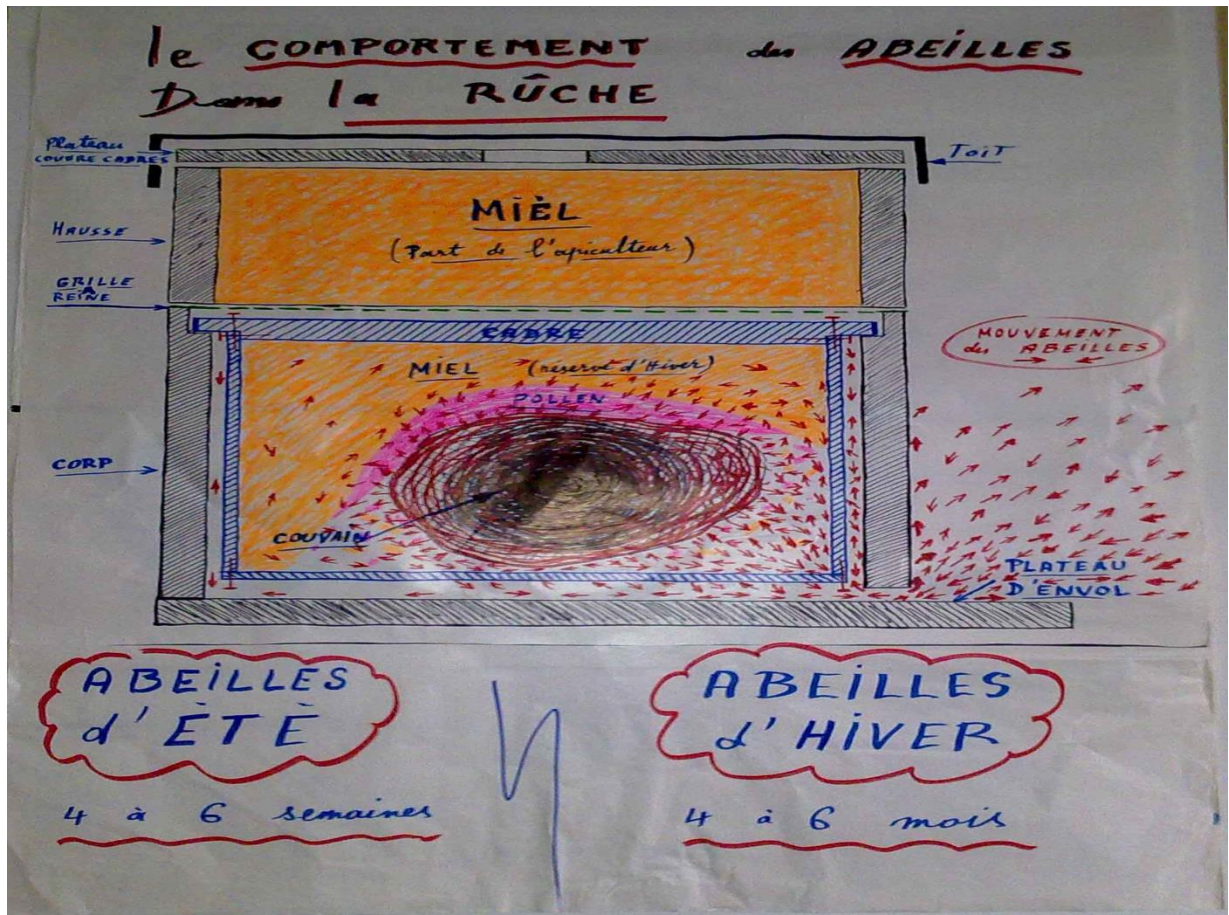 le COMPORTEMENT des ABEiLLES
Dans la RÛCHE
Plateau
COUVRE CADRES
ToiT
MIÈL
(Part de l'apiculteur)
HAUSSE
GRILLE
A
REINE
CADRE
MIEL (réserve d'Hiver)
POLLEN
MOUVEMENT
des ABEILLES
CORP
COUVAIN
PLATEAU
D'ENVOL
ABEiLLES
d'ÈTÈ
4 à 6 semaines
ABEiLLES
d'HiVER
4 à 6 mois